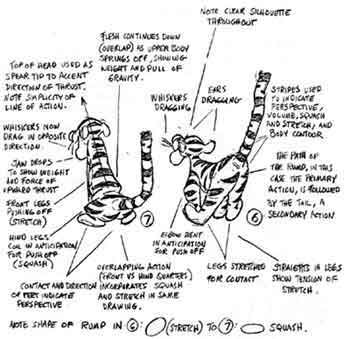 NOTE CLEAR SILHOUETTE
THROUGHOUT
FLESH CONTINUES DOWN
(OVERLAP) AS UPPER BODY
SPRINGS OFF, SHOWING
WEIGHT AND PULL OF
GRAVITY.
TOP OF HEAD USED AS
SPEAR TIP TO ACCENT
DIRECTION OF THRUST.
NOTE SIMPLICITY OF
LINE OF ACTION.
WHISKERS NOW
DRAG IN OPPOSITE
DIRECTION.
JAW DROPS
TO SHOW WEIGHT
AND FORCE OF
UPWARD THRUST
FRONT LEGS
PUSHING OFF
(STRETCH)
HIND LEGS
COIL IN ANTICIPATION
FOR PUSH OFF
(SQUASH)
CONTACT AND DIRECTION
OF FEET INDICATE
PERSPECTIVE
7
OVERLAPPING ACTION
(FRONT VS HIND QUARTERS)
INCORPORATES SQUASH
AND STRETCH IN SAME
DRAWING.
WHISKERS
DRAGGING
EARS
DRAGGING
STRIPES USED
TO INDICATE
PERSPECTIVE,
VOLUME, SQUASH
AND STRETCH, AND
BODY CONTOUR
THE PATH OF
THE RUMP, IN THIS
CASE THE PRIMARY
ACTION, IS FOLLOWED
BY THE TAIL, A
SECONDARY ACTION
6
ELBOW BENT
IN ANTICIPATION
FOR PUSH OFF
LEGS STRETCHED
FOR CONTACT
STRAIGHTS IN LEGS
SHOW TENSION OF
STRETCH.
NOTE SHAPE OF RUMP IN 6: (STRETCH) TO 7: SQUASH.